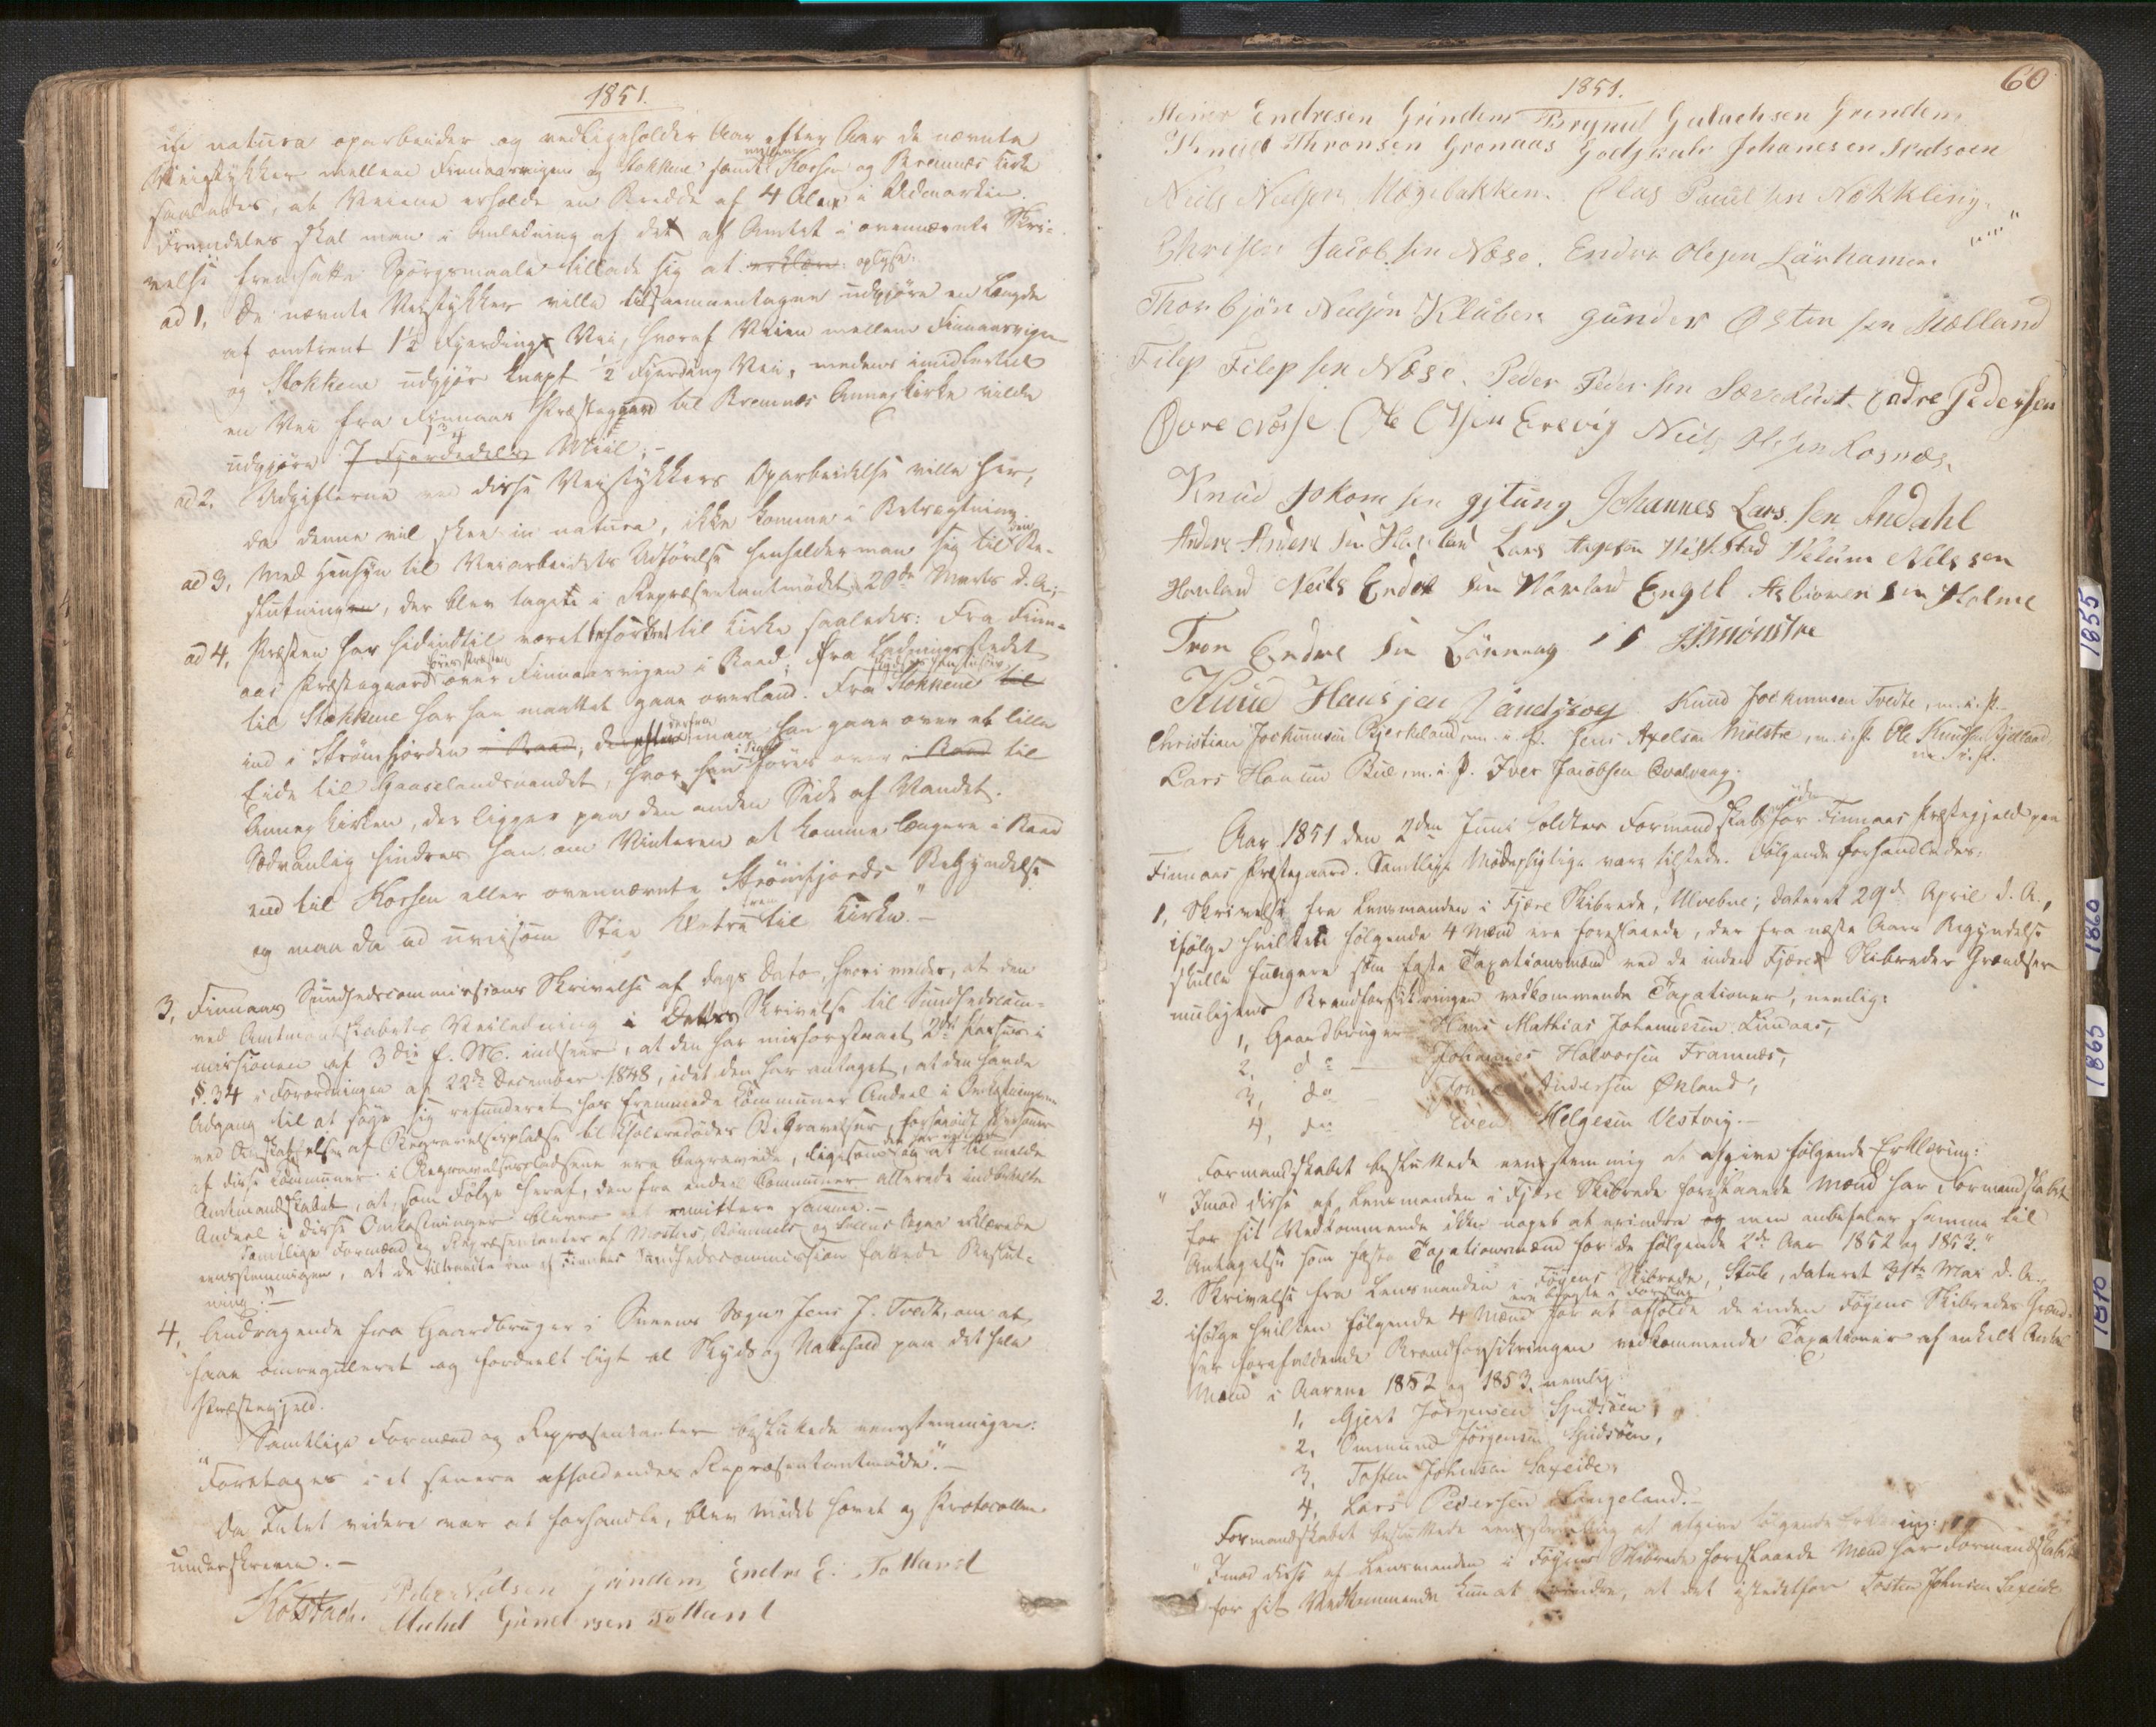 1851.
in natura oparbeider og vedligeholder Aar efter Aar de nævnte
Veistykker mellem Finnaasvigen og Stokkene samt mellem Korsen og Bremnæs Kirke
saaledes, at Veiene erholde en Bredde af 4 Alen i Udmarken.
Fremdeles skal man i Anledning af det af Amtet i ovennævnte Skri-
velse fremsatte Spørgsmaale tillade sig at erklære oplyse:
ad 1, De nævnte Veistykker ville tilsammentagne udgjøre en Længde
af omtrent 1½ Fjerding Vei, hvoraf Veien mellem Finnaasvigen
og Stokkene udgjør knapt ½ Fjerding Vei, medens imidlertid
en Vei fra Finnaas Præstegaard til Bremnæs Annexkirke vilde
udgjøre 7 Fjerdedels 1¾ Miil;-
ad 2. Udgifterne ved disse Veistykkers Oparbeidelse ville her,
da denne vil skee in natura, ikke komme i Betragtning.
ad 3, Med Hensyn til Veiarbeidets Udførelse henholder man sig til den Be-
slutning, der blev tagen i Repræsentantmødet 20de Marts d. A.;-
ad 4, Præsten har hidindtil været befordret til Kirke saaledes: Fra Finn-
aas Præstegaard føres Præsten over Finnaasvigen i Baad; fra Landingsstedet
til Stokkene har han maattet gaae overland. Fra Stokkene til
ind i Strømfjorden i Baad, derfra maa han gaae over et lille
Eide til Gaaselandsvandet, hvor han føres over i Baad til
Annexkirken, der ligger paa den anden Side af Vandet.
Sædvanlig hindres han om Vinteren at komme længere i Baad
end til Korsen eller ovennævnte Strømfjords Begyndelse
og maa da ad uveisom Stie betræ til Kirke."-
3, Finnaas Sundhedscommissions Skrivelse af Dags Dato, hvori meldes, at den
ved Amtmandskabets Veiledning i Dettes Skrivelse til Sundhedscom-
missionen af 3die f. M. indseer, at den har misforstaaet 2det Passus i
§. 34 i Forordningen af 22de December 1848, idet den har antaget, at den havde
Adgang til at søge sig refunderet hos fremmede Communer Andeel i Omkostningerne
ved Anskaffelsen af Begravelsesplads til Choleradødes Begravelser, forsaavidt Personer
af disse Communer i Begravelsespladsene ere begravede, ligesom at tilmelde
Amtmandskabet, at, som Følge heraf, den fra endeel Communer allerede indbetalte
Andeel i disse Omkostninger bliver at remittere samme.-
Samtlige Formænd og Repræsentanter af Mosters, Bømmels og Sveens Sogne erklærede
eenstemmigen, at de tiltraadte den af Finnaas Sundhedscommission fattede Beslut-
ning."-
4, Andragende fra Gaardbruger i Sveens Sogn Jens J. Tvedt, om at
faae omreguleret og fordeelt ligt al Skyds og Nattehold paa det hele
Præstegjeld.
Samtlige Formænd og Repræsentanter besluttede eenstemmigen:
"Foretages i et senere afholdendes Repræsentantmøde."-
Da Intet videre var at forhandle, blev Mødet hævet og Protocollen
underskreven.-
Kolstad. Peder Nilsen Grindem Endre E. Tolland
Michel Gunersen Tolland
60
1851.
Stener Endresen Grindem Brynild Gutachsen Grindem
Knud Thronsen Gronaas Godskalk Johanesen Spidsoen
Niels Nielsen Hægebakken. Elias Paulsen Nøkkling
Christen Jacobsen Næse. Endre Olesen Lärhamer
Thorbjön Nielsen Kluben gunder Østensen Mælland
Filep Filepsen Næse. Peder Pedersen Særekust Endre Pedersen
Øvrenæsse Ole Olsen Erevig Niels Olsen Rosnæs.
Knud Jokomsen gjtung Johannes Larssen Andahl
Anders Anders Sen Havland Lars Aagesen Hidskstad Villum Nilssen
Havland Neils Endre Sen Havland Engel Asbiornsen Holme
Tron Endre Sen Lönning J. Jmønstre
Knud Hansjen Sandsvog Knud Jochumsen Tvedte, m. i. P.
Christian Jochumsen Bjerkeland, m. i. P. Jens Axelsen Mölstre, m. i. P. Ole Knudsen Gjelland
m. i. P.
Lars Hansen Bue, m. i. P. Iver Jacobsen Qvalvaag.
Aar 1851 den 2den Juni holdtes Formandskabsmøde for Finnaas Præstegjeld paa
Finnaas Præstegaard. Samtlige Mødepligtige vare tilstede. Følgende forhandledes:
1, Skrivelse fra Lensmanden i Fjære Skibrede, Ulvebne; dateret 29de April d. A.,
ifølge hvilken følgende 4 Mænd ere foreslaaede, der fra næste Aars Begyndelse
skulle fungere som faste Taxationsmænd ved de inden Fjære Skibredes Grændser
muligens Brandforsikringen vedkommende Taxationer, nemlig:
1, Gaardbruger Hans Mathias Johannesen Lindaas,
2, do - Johannes Halvorsen Framnæs,
3, do - Johannes Andersen Økland,
4, do Iver Helgesen Vestvig.-
Formandskabet besluttede eenstemmig at afgive følgende Erklæring:
"Imod disse af Lensmanden i Fjære Skibrede foreslaaede Mænd har Formandskabet
for sit Vedkommende ikke noget at erindre og men anbefaler samme til
Antagelse som faste Taxationsmænd for de følgende 2de Aar 1852 og 1853."
2. Skrivelse fra Lensmanden i Føyens Skibrede, Stub, dateret 7de Mai d. A.,
ifølge hvilken følgende 4 Mænd ere bragte i Forslag for at afholde de inden Føyens Skibredes Grænd-
ser forefaldende Brandforsikringen vedkommende Taxationer af enkelt
Mænd i Aarene 1852 og 1853, nemlig:
1, Gjert Jørgensen Spidsöen,
2, Ommund Jörgensen Spidsöen,
3, Tosten Johnsen Saxeide,
4, Lars Pedersen Längeland.-
Formandskabet besluttede eenstemmig at afgive følgende Erklæring:
"Imod disse af Lensmanden i Føyens Skibrede foreslaaede Mænd har Formandskabet
for sit Vedkommende kun at erindre, at det istedetfor Tosten Johnsen Saxeide
1855
1860
1865
1870